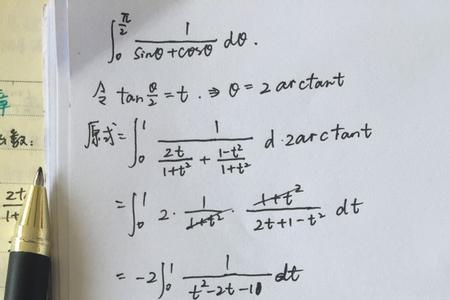 ∫₀^{π/2} 1/(sinθ+cosθ) dθ.
令 tan θ/2 = t. ⇒ θ = 2arctant
原式 = ∫₀¹ 1/(2t/(1+t²) + (1-t²)/(1+t²)) d·2arctant
= ∫₀¹ 2· 1/(1+t²) · (1+t²)/(2t+1-t²) dt
= -2∫₀¹ 1/(t²-2t-1) dt
章
数:
2t
1+